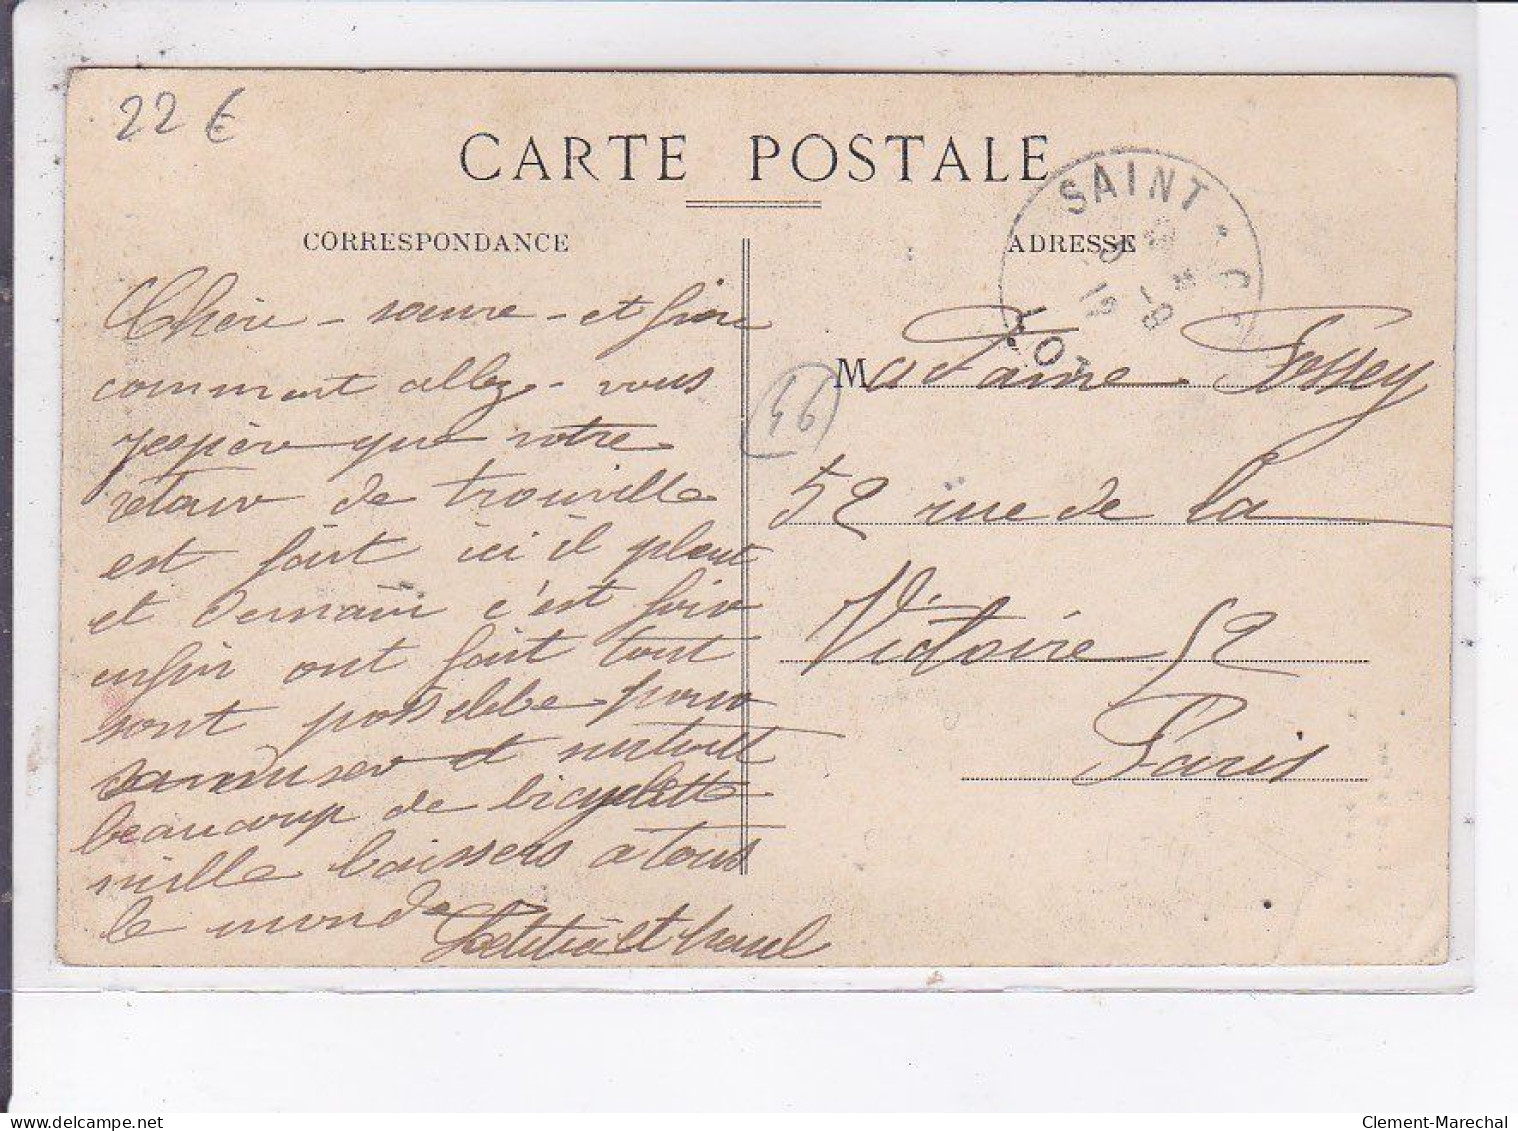 22 €
CARTE POSTALE
CORRESPONDANCE
ADRESSE
SAINT - C
LOT
Chère - sœure - et frère
comment allez - vous
jespère que votre
retour de trouville
est fait ici il pleut
et demain c'est foire
enfin ont fait tout
sont possible pour
samuser et surtout
beaucoup de bicyclette
mille baissers a tous
le monde
Letitia et Paul
46
Madame Fossey
52 rue de la
Victoire 52
Paris
delcampe.net
Clement-Marechal